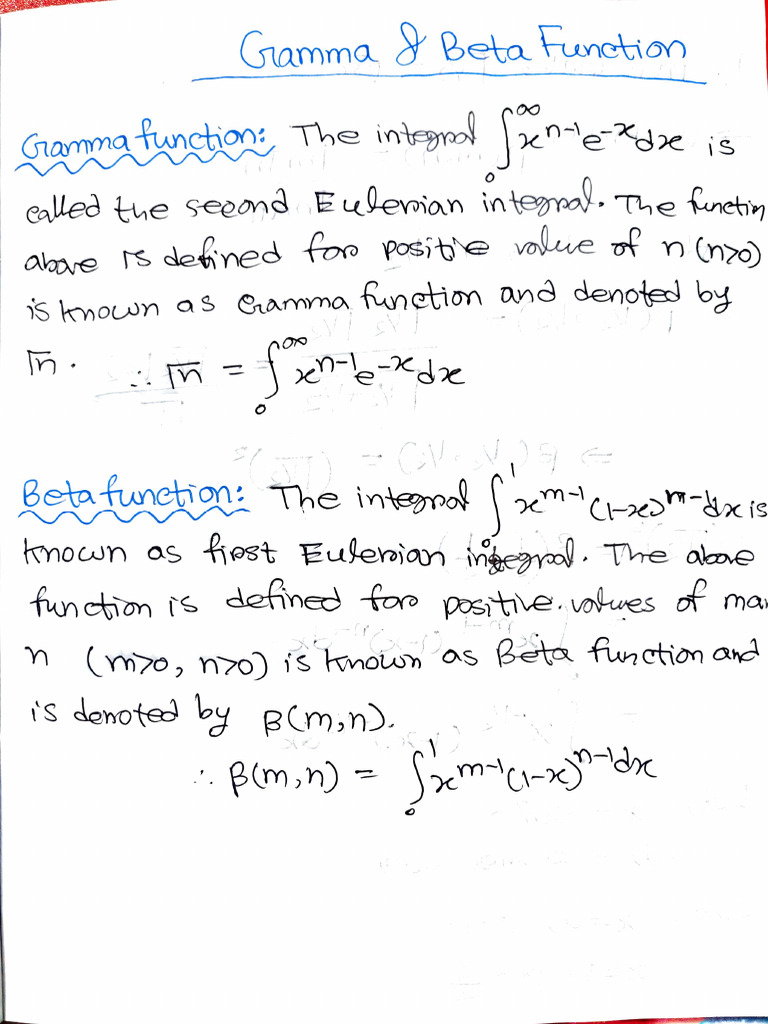 Gamma & Beta Function
Gamma function: The integral ∫₀^∞ x^{n-1} e^{-x} dx is
called the second Eulerian integral. The functin
above is defined for positive value of n (n>0)
is known as Gamma function and denoted by
Γn. ∴ Γn = ∫₀^∞ x^{n-1} e^{-x} dx
Beta function: The integral ∫₀^1 x^{m-1} (1-x)^{m-1} dx is
known as first Eulerian integral. The above
function is defined for positive values of m an
n (m>0, n>0) is known as Beta function and
is denoted by β(m,n).
∴ β(m,n) = ∫₀^1 x^{m-1} (1-x)^{n-1} dx